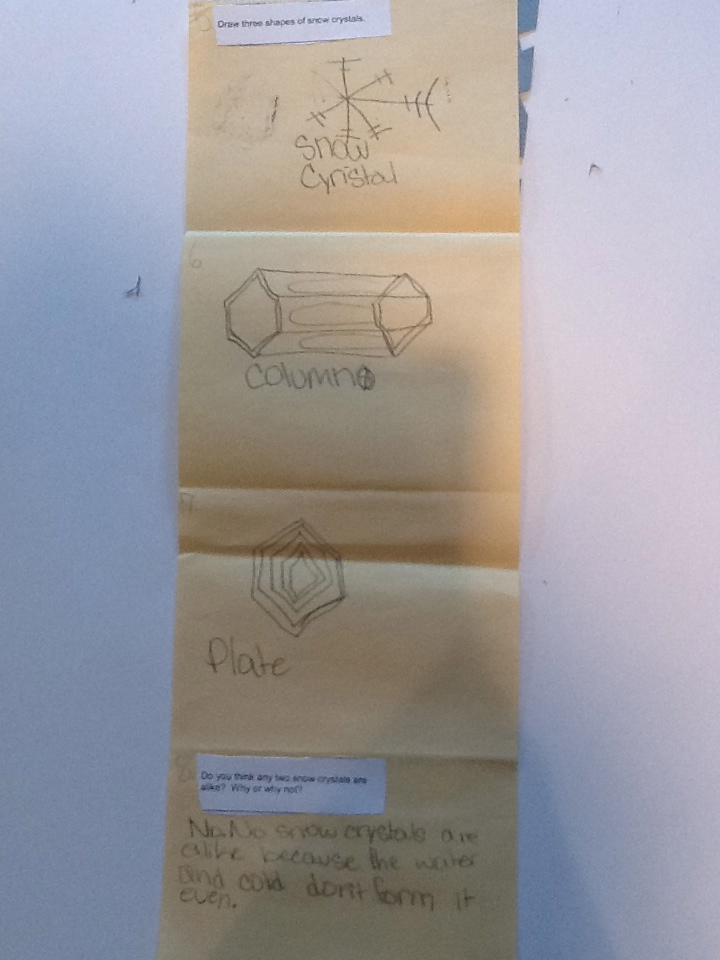 5
Draw three shapes of snow crystals.
Snow
Cyristal
6
Column
7
Plate
8
Do you think any two snow crystals are
alike? Why or why not?
No. No snow crystals are
alike because the water
and cold don't form it
even.